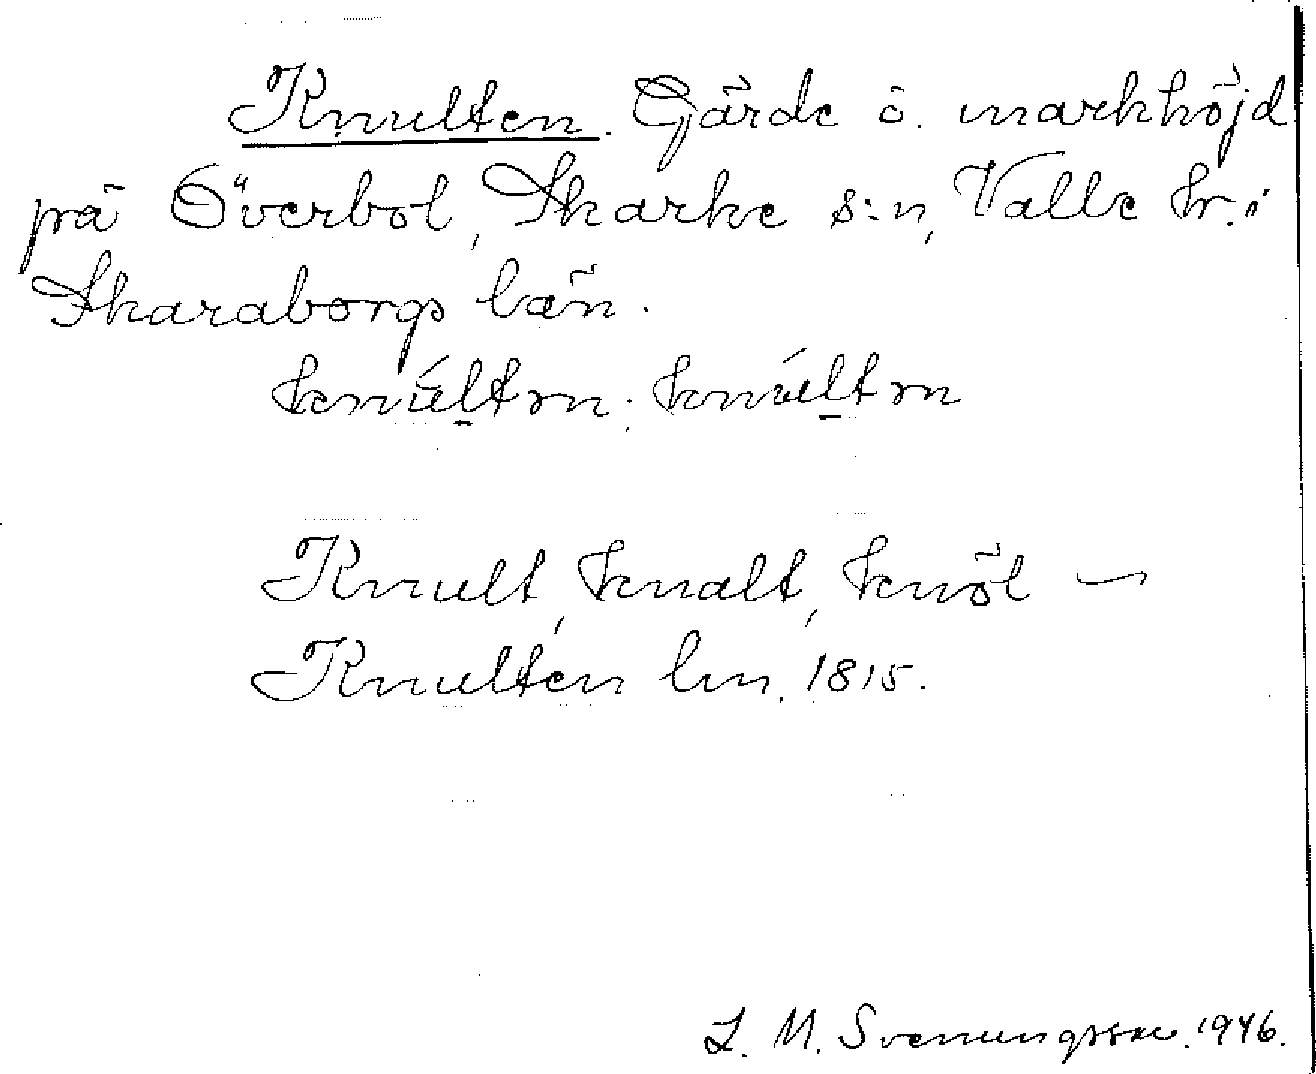 Knulten. Gärde o. markhöjd
på Överbol, Skarke s:n, Valle hr. i
Skaraborgs län.
knúltn; knúltn
Knult, knalt, knöl —
Knulten lm. 1815.
L. M. Svenungsson. 1946.